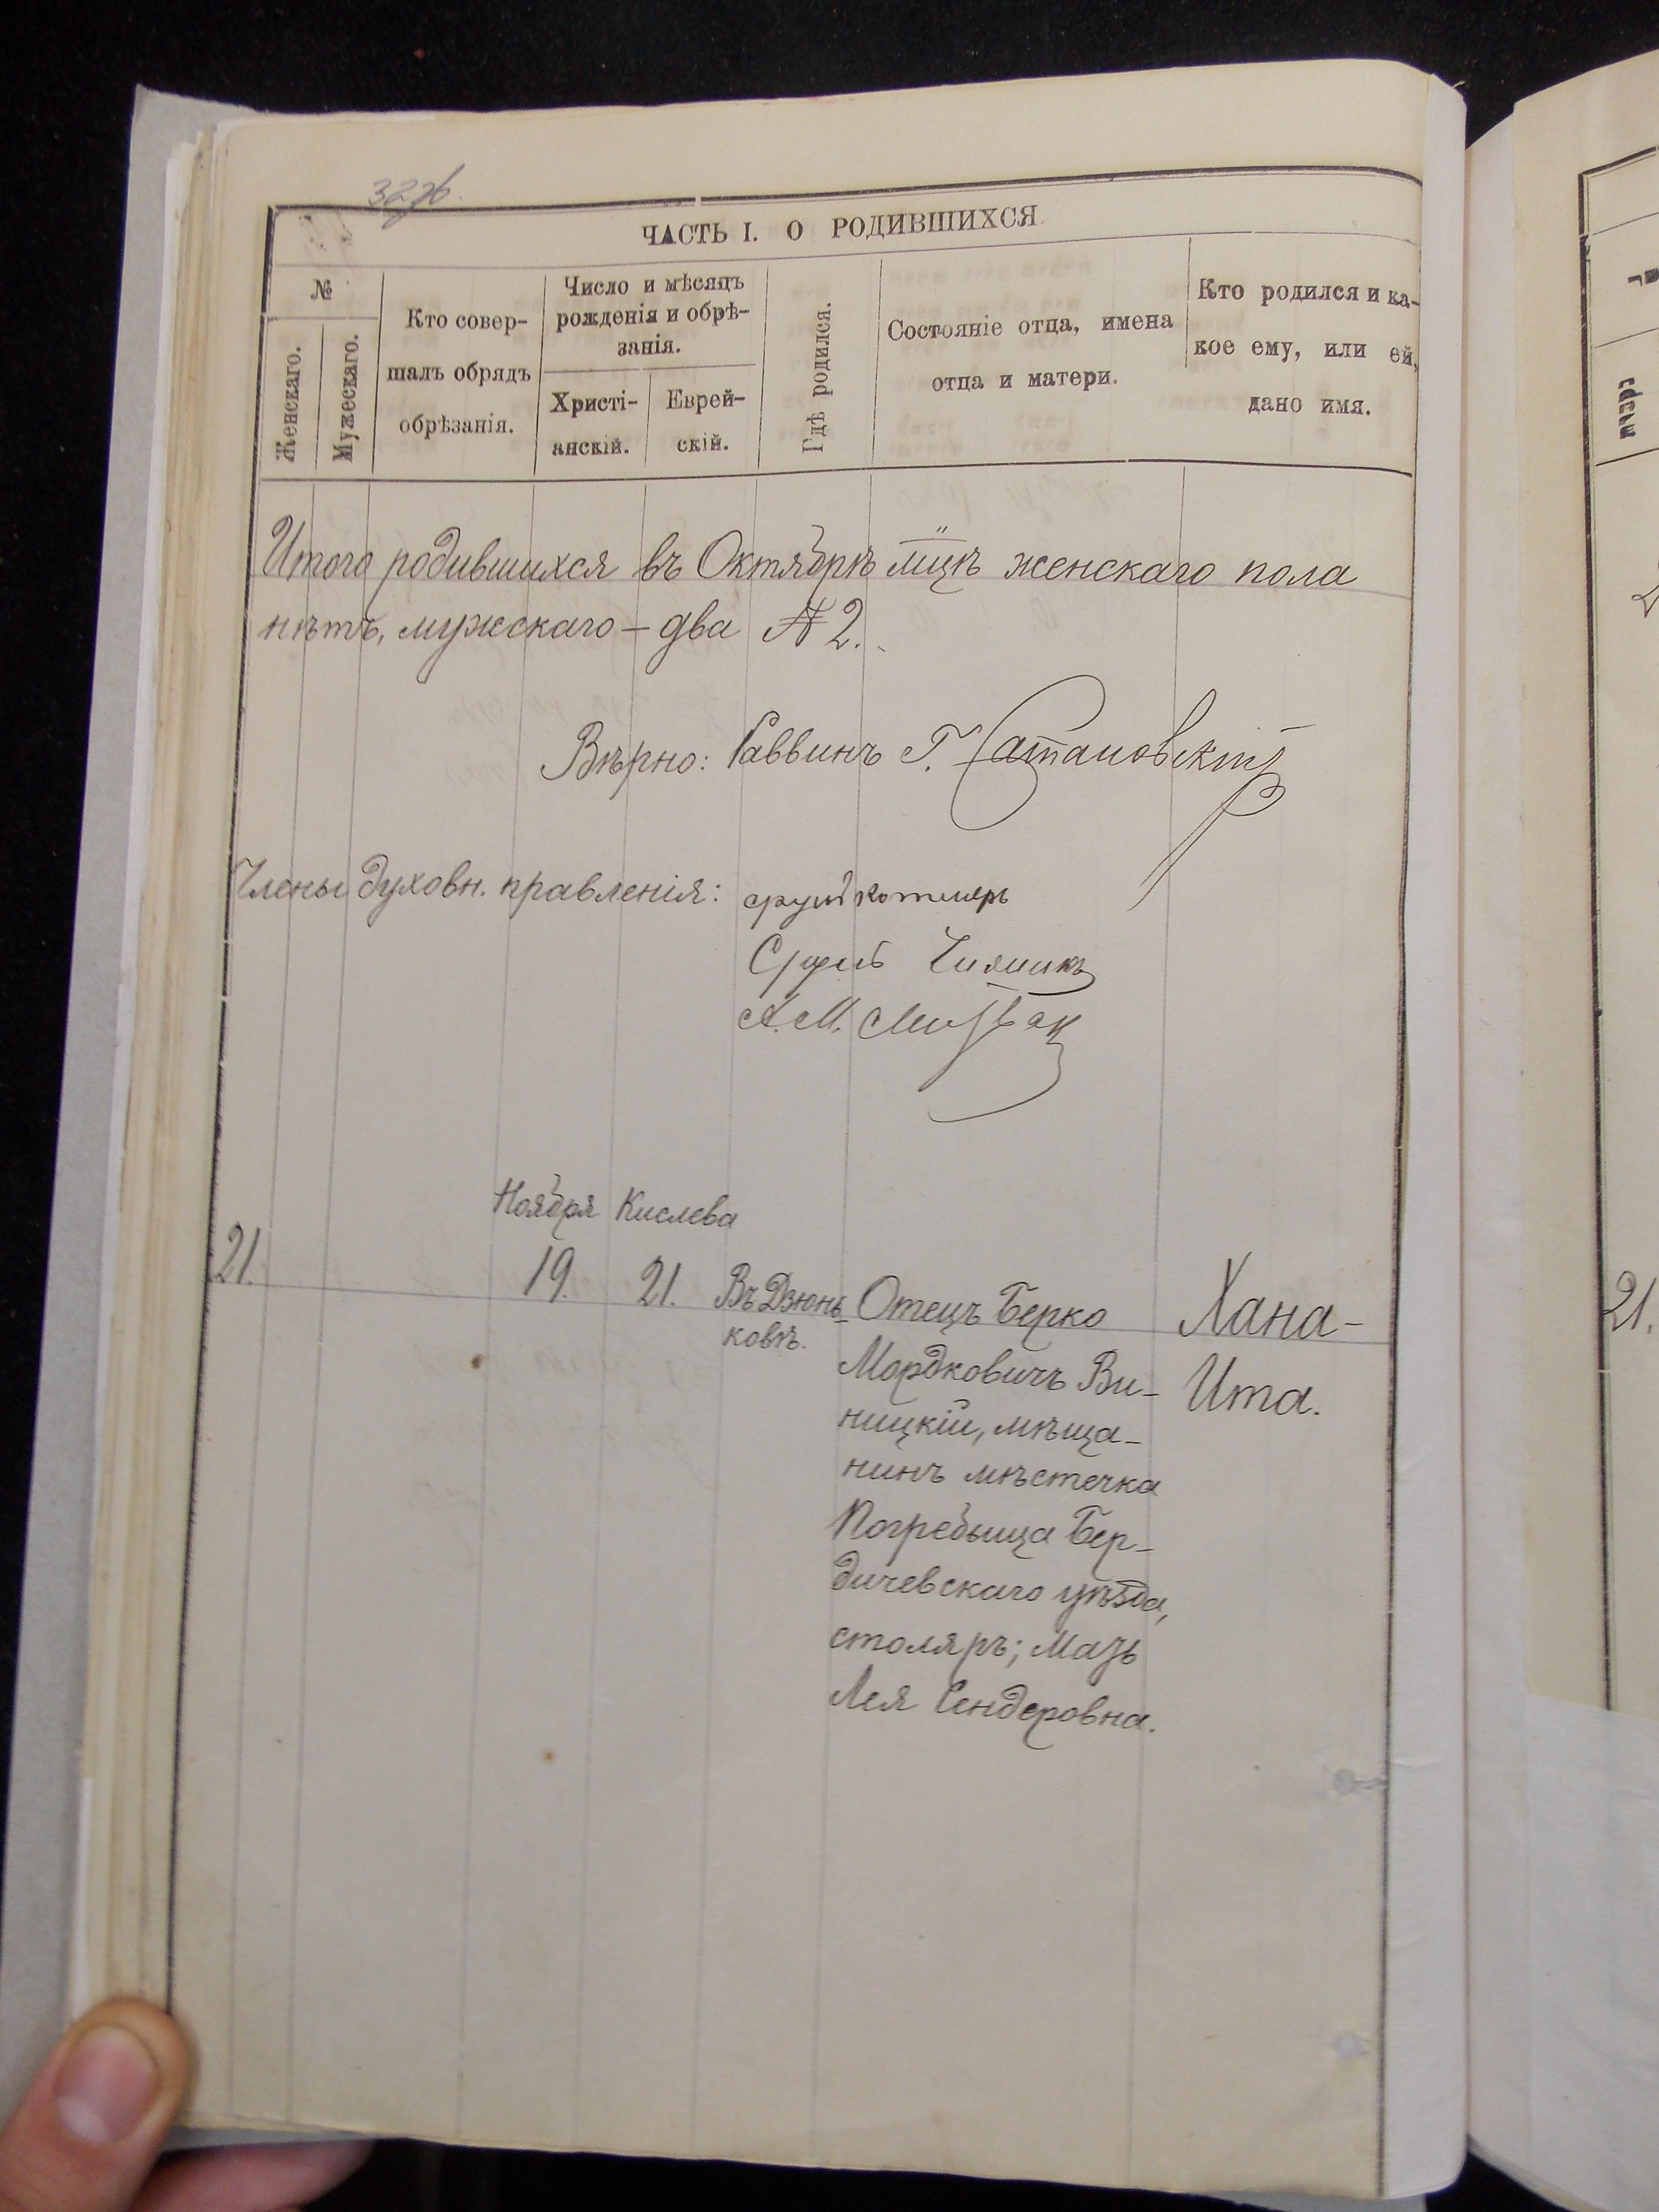 ЧАСТЬ I. О РОДИВШИХСЯ.
№
Женскаго.
Мужескаго.
Кто совер-
шалъ обрядъ
обрѣзанія.
Число и мѣсяцъ
рожденія и обрѣ-
занія.
Христі-
анскій.
Еврей-
скій.
Гдѣ родился.
Состояніе отца, имена
отца и матери.
Кто родился и ка-
кое ему, или ей,
дано имя.
Итого родившихся въ Октябрѣ мцѣ женскаго пола
нѣтъ, мужскаго – два № 2.
Вѣрно: Раввинъ Г. Сатановскій
Члены духовн. правленія:
А. М.
Ноября Кислева
21. 19. 21. Въ Дзюнь-
ковѣ.
Отецъ Берко
Мордковичъ Ви-
ницкій, мѣща-
нинъ мѣстечка
Погребыща Бер-
дичевскаго уѣзда,
столяръ; Мать
Лея Сендеровна.
Хана-
Ита.
21.